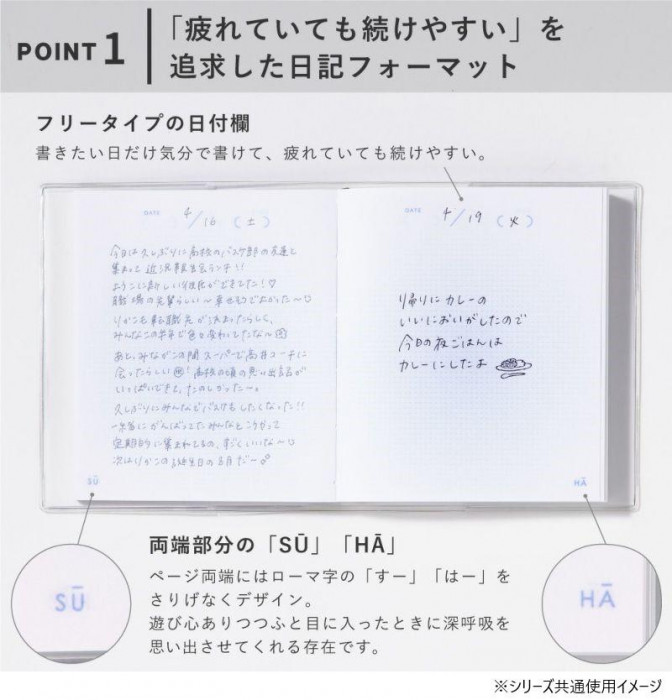 POINT 1
「疲れていても続けやすい」を
追求した日記フォーマット
フリータイプの日付欄
書きたい日だけ気分で書けて、疲れていても続けやすい。
DATE 4/16 (土)
今日は久しぶりに高校のバスケ部の友達と
集まって近況報告会ランチ!!
ようこに新しい彼氏ができてた!♡
職場の先輩らしい〜幸せそうでよかった〜♡
りかこも転職先が決まったらしく、
みんなこの半年で色々変わってたな〜
あと、みながこの間スーパーで高井コーチに
会ったらしい 高校の頃の思い出話が
いっぱいできて、たのしかった〜。
久しぶりにみんなでバスケもしたくなった!!
一緒にがんばってたみんなとこうやって
定期的に集まれてるの、すごくいいな〜♡
次はりかこの誕生日の5月だ〜
SŪ
DATE 4/19 (火)
帰りにカレーの
いいにおいがしたので
今日の夜ごはんは
カレーにしたよ
HĀ
両端部分の「SŪ」「HĀ」
ページ両端にはローマ字の「すー」「はー」を
さりげなくデザイン。
遊び心ありつつふと目に入ったときに深呼吸を
思い出させてくれる存在です。
SŪ
HĀ
※シリーズ共通使用イメージ